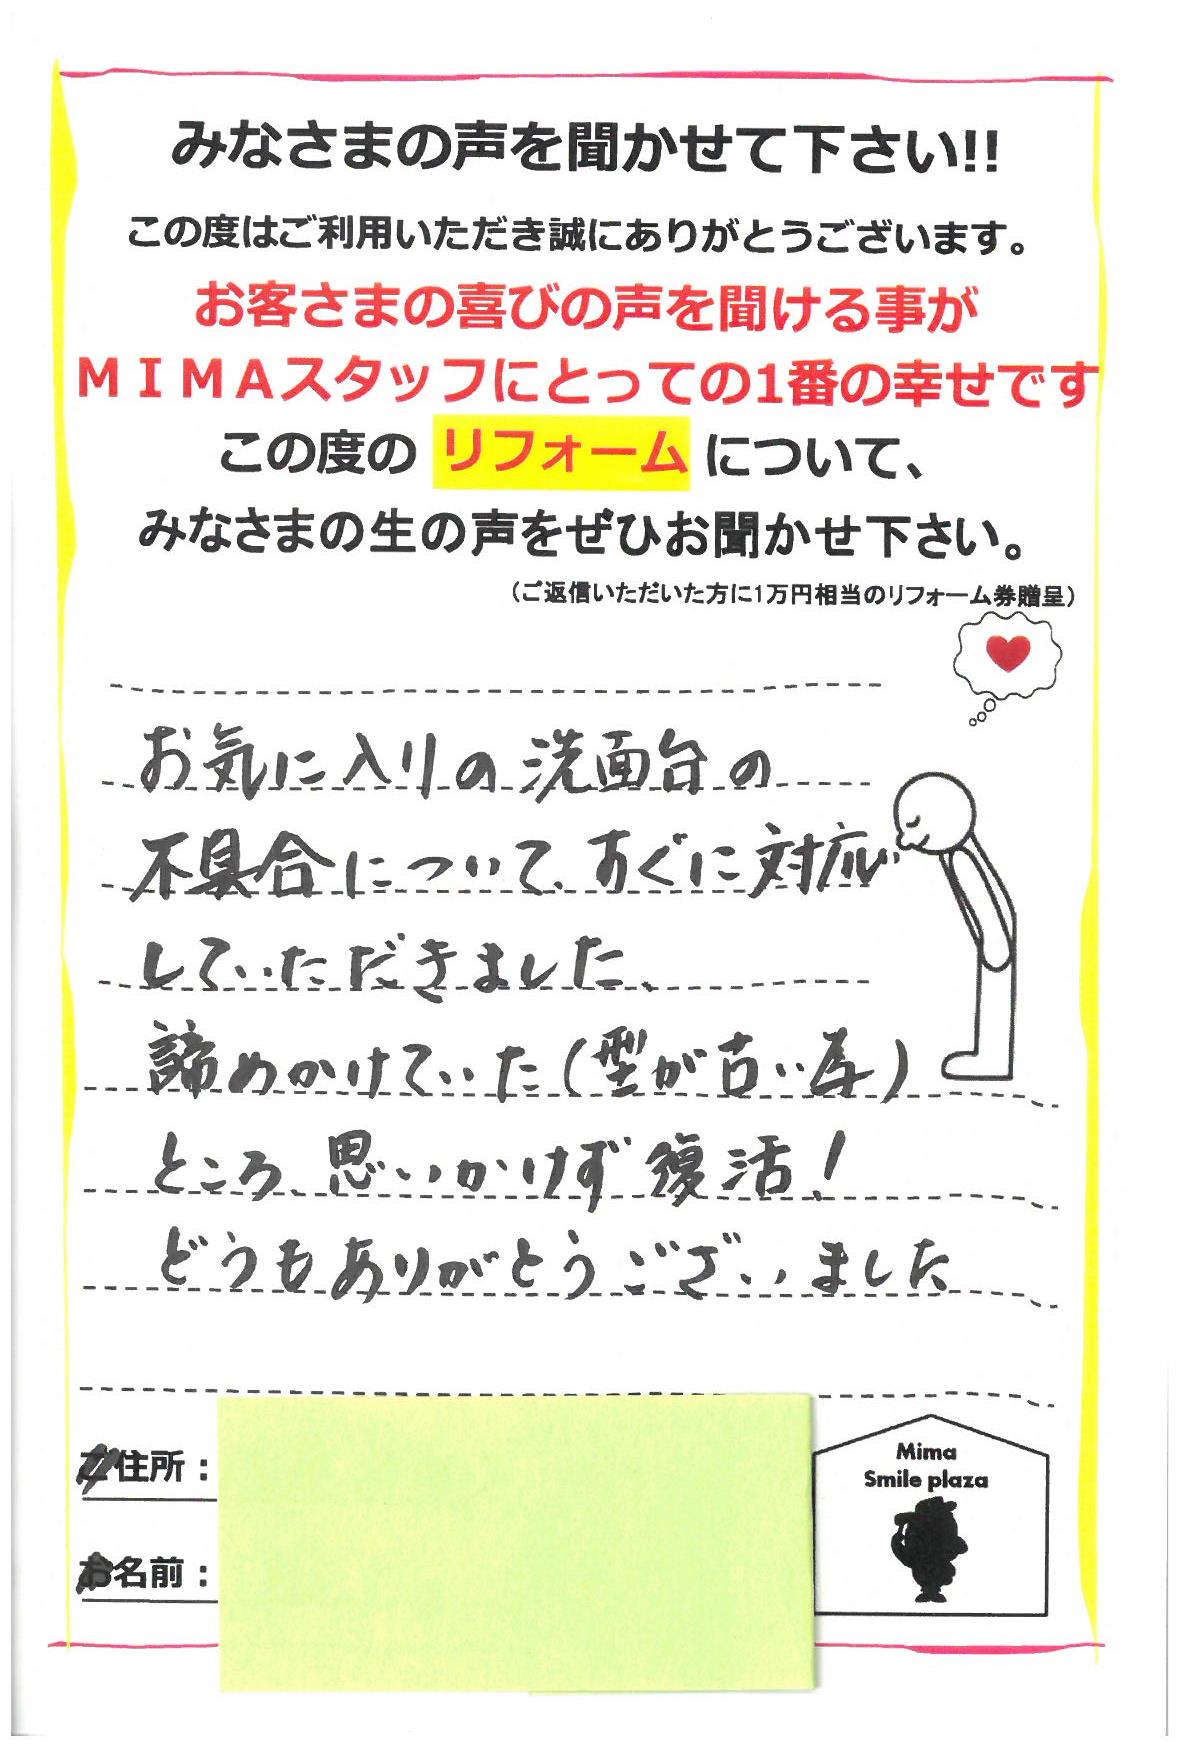 みなさまの声を聞かせて下さい!!
この度はご利用いただき誠にありがとうございます。
お客さまの喜びの声を聞ける事が
ＭＩＭＡスタッフにとっての1番の幸せです
この度の リフォーム について、
みなさまの生の声をぜひお聞かせ下さい。
（ご返信いただいた方に1万円相当のリフォーム券贈呈）
お気に入りの洗面台の
不具合について、すぐに対応
していただきました、
諦めかけていた(型が古い為)
ところ、思いかけず復活!
どうもありがとうございました
ご住所：
お名前：
Mima
Smile plaza